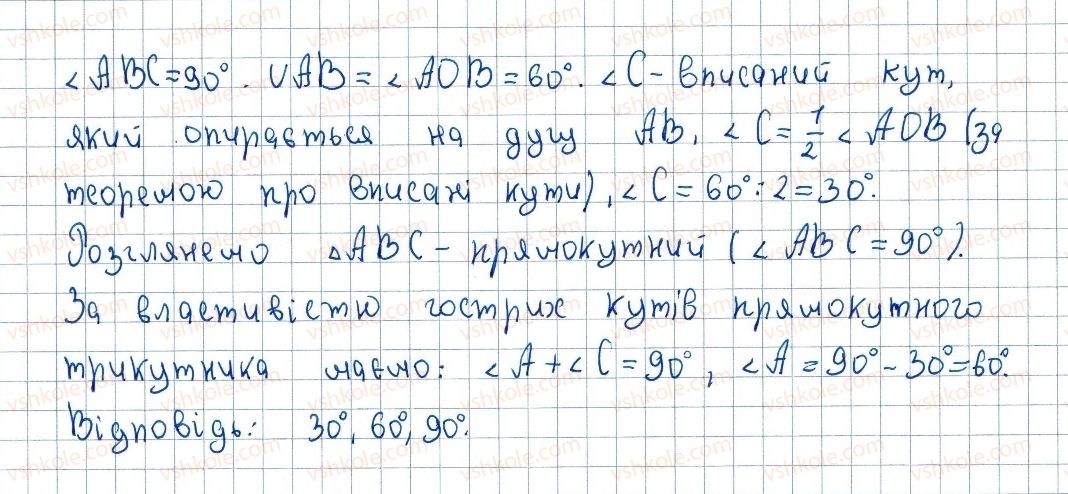 ∠ABC = 90°. ∪AB = ∠AOB = 60°. ∠C - вписаний кут,
який опирається на дугу AB, ∠C = 1/2 ∠AOB (за
теоремою про вписані кути), ∠C = 60° : 2 = 30°.
Розглянемо △ABC - прямокутний (∠ABC = 90°).
За властивістю гострих кутів прямокутного
трикутника маємо: ∠A + ∠C = 90°, ∠A = 90° - 30° = 60°.
Відповідь: 30°, 60°, 90°.